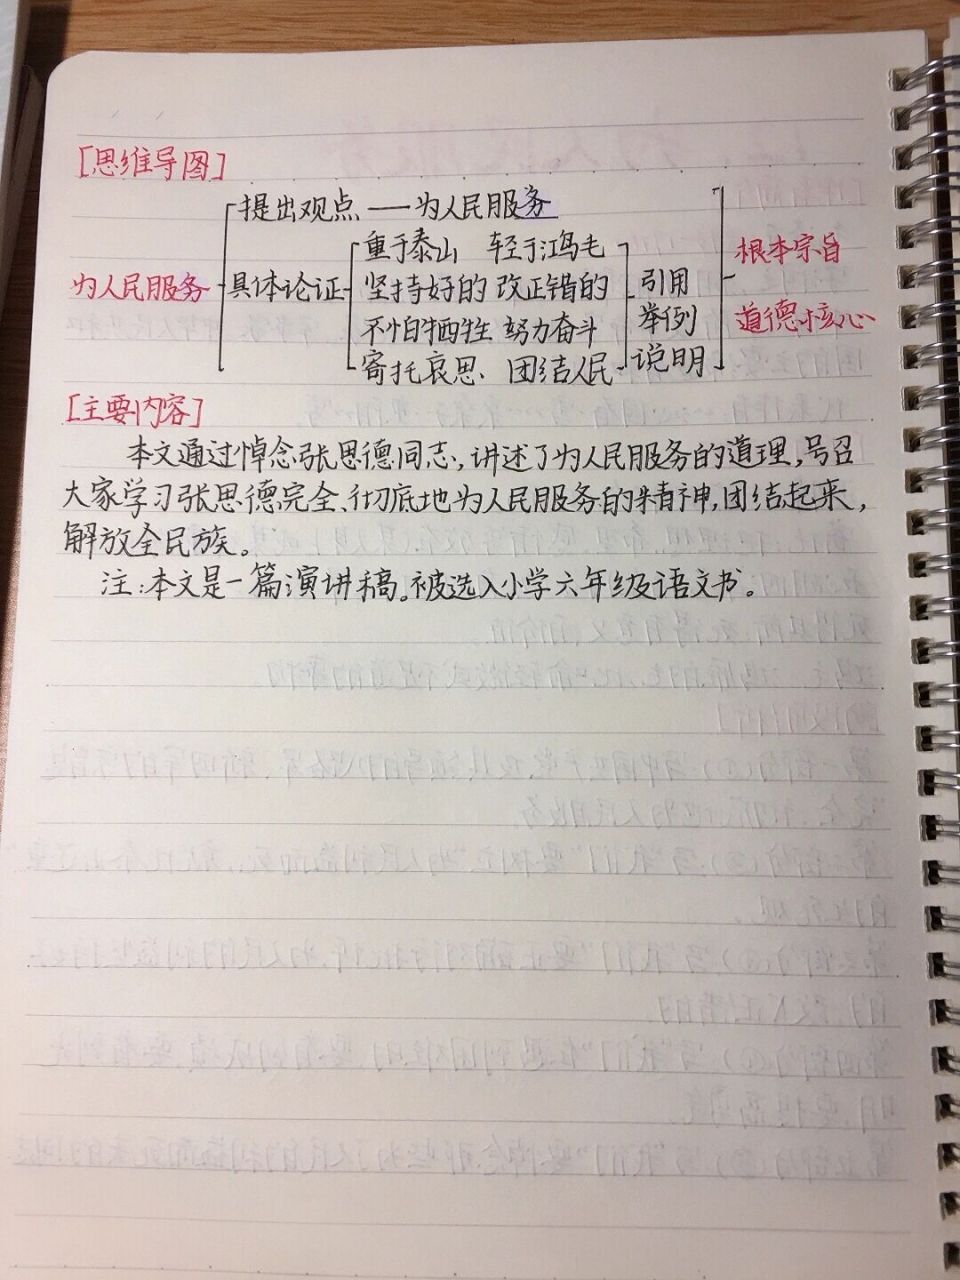 [思维导图]
提出观点——为人民服务
重于泰山 轻于鸿毛
根本宗旨
为人民服务 具体论证 坚持好的 改正错的 引用
不怕牺牲 努力奋斗 举例 道德核心
寄托哀思、团结人民 说明
[主要内容]
本文通过悼念张思德同志,讲述了为人民服务的道理,号召
大家学习张思德完全、彻底地为人民服务的精神,团结起来,
解放全民族。
注:本文是一篇演讲稿。被选入小学六年级语文书。